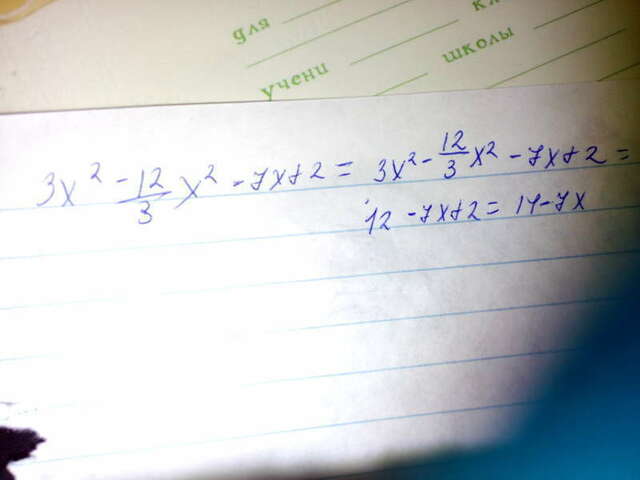 для
кл
учени
школы
3x² - 12/3 x² - 7x + 2 = 3x² - 12/3 x² - 7x + 2 =
12 - 7x + 2 = 14 - 7x